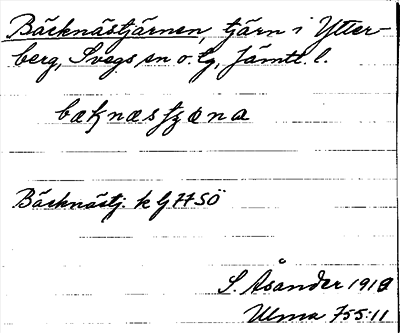 Bäcknästjärnen, tjärn i Ytter-
berg, Svegs sn o. tg, Jämtl. l.
bæknæstjæna
Bäcknästj. k G H SÖ
S. Åsander 1919
Ulma 755:11